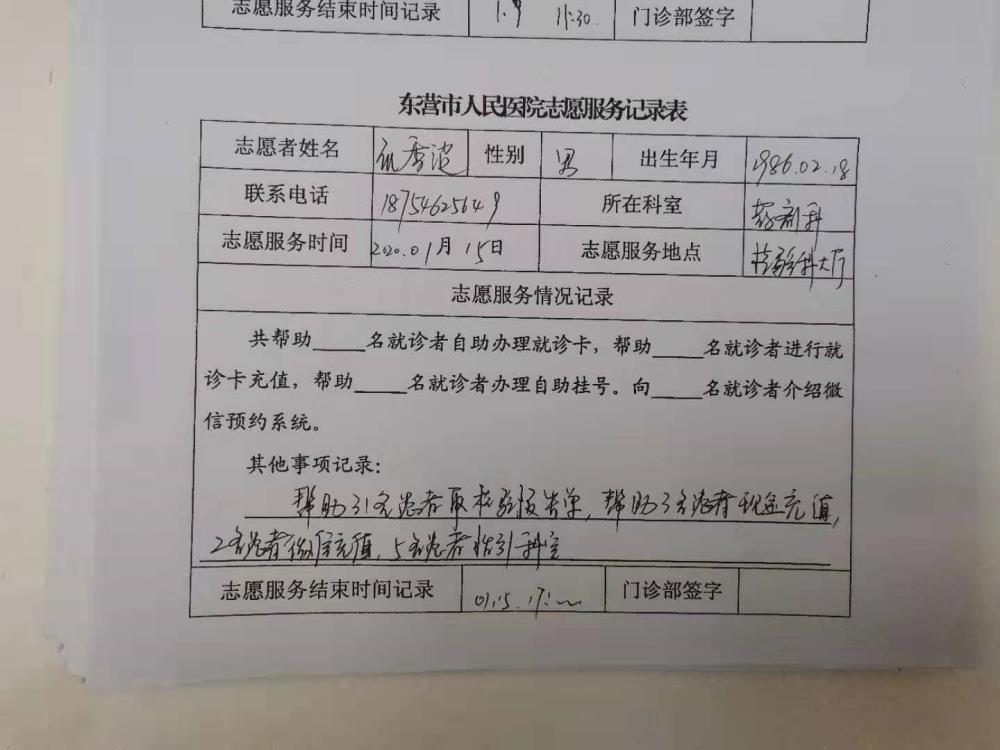 志愿服务结束时间记录 1.9 11:30. 门诊部签字
东营市人民医院志愿服务记录表
志愿者姓名 性别 男 出生年月 1986.02.18
联系电话 18754625649 所在科室 药剂科
志愿服务时间 2020.01月15日 志愿服务地点 检验科大厅
志愿服务情况记录
共帮助_____名就诊者自助办理就诊卡，帮助_____名就诊者进行就
诊卡充值，帮助_____名就诊者办理自助挂号。向_____名就诊者介绍微
信预约系统。
其他事项记录：
帮助31名患者取检验报告单，帮助3名患者现金充值，
2名患者微信充值，5名患者指引科室
志愿服务结束时间记录 01.15. 17: 门诊部签字